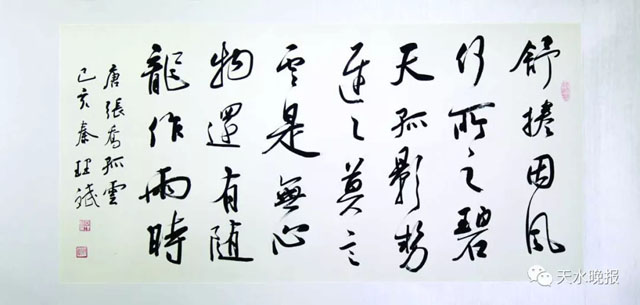 舒捲因風
何所之碧
天孤影勢
遲々莫言
長是無心
物還有随
龍作雨時
唐張喬孤雲
己亥秦理
天水晚报